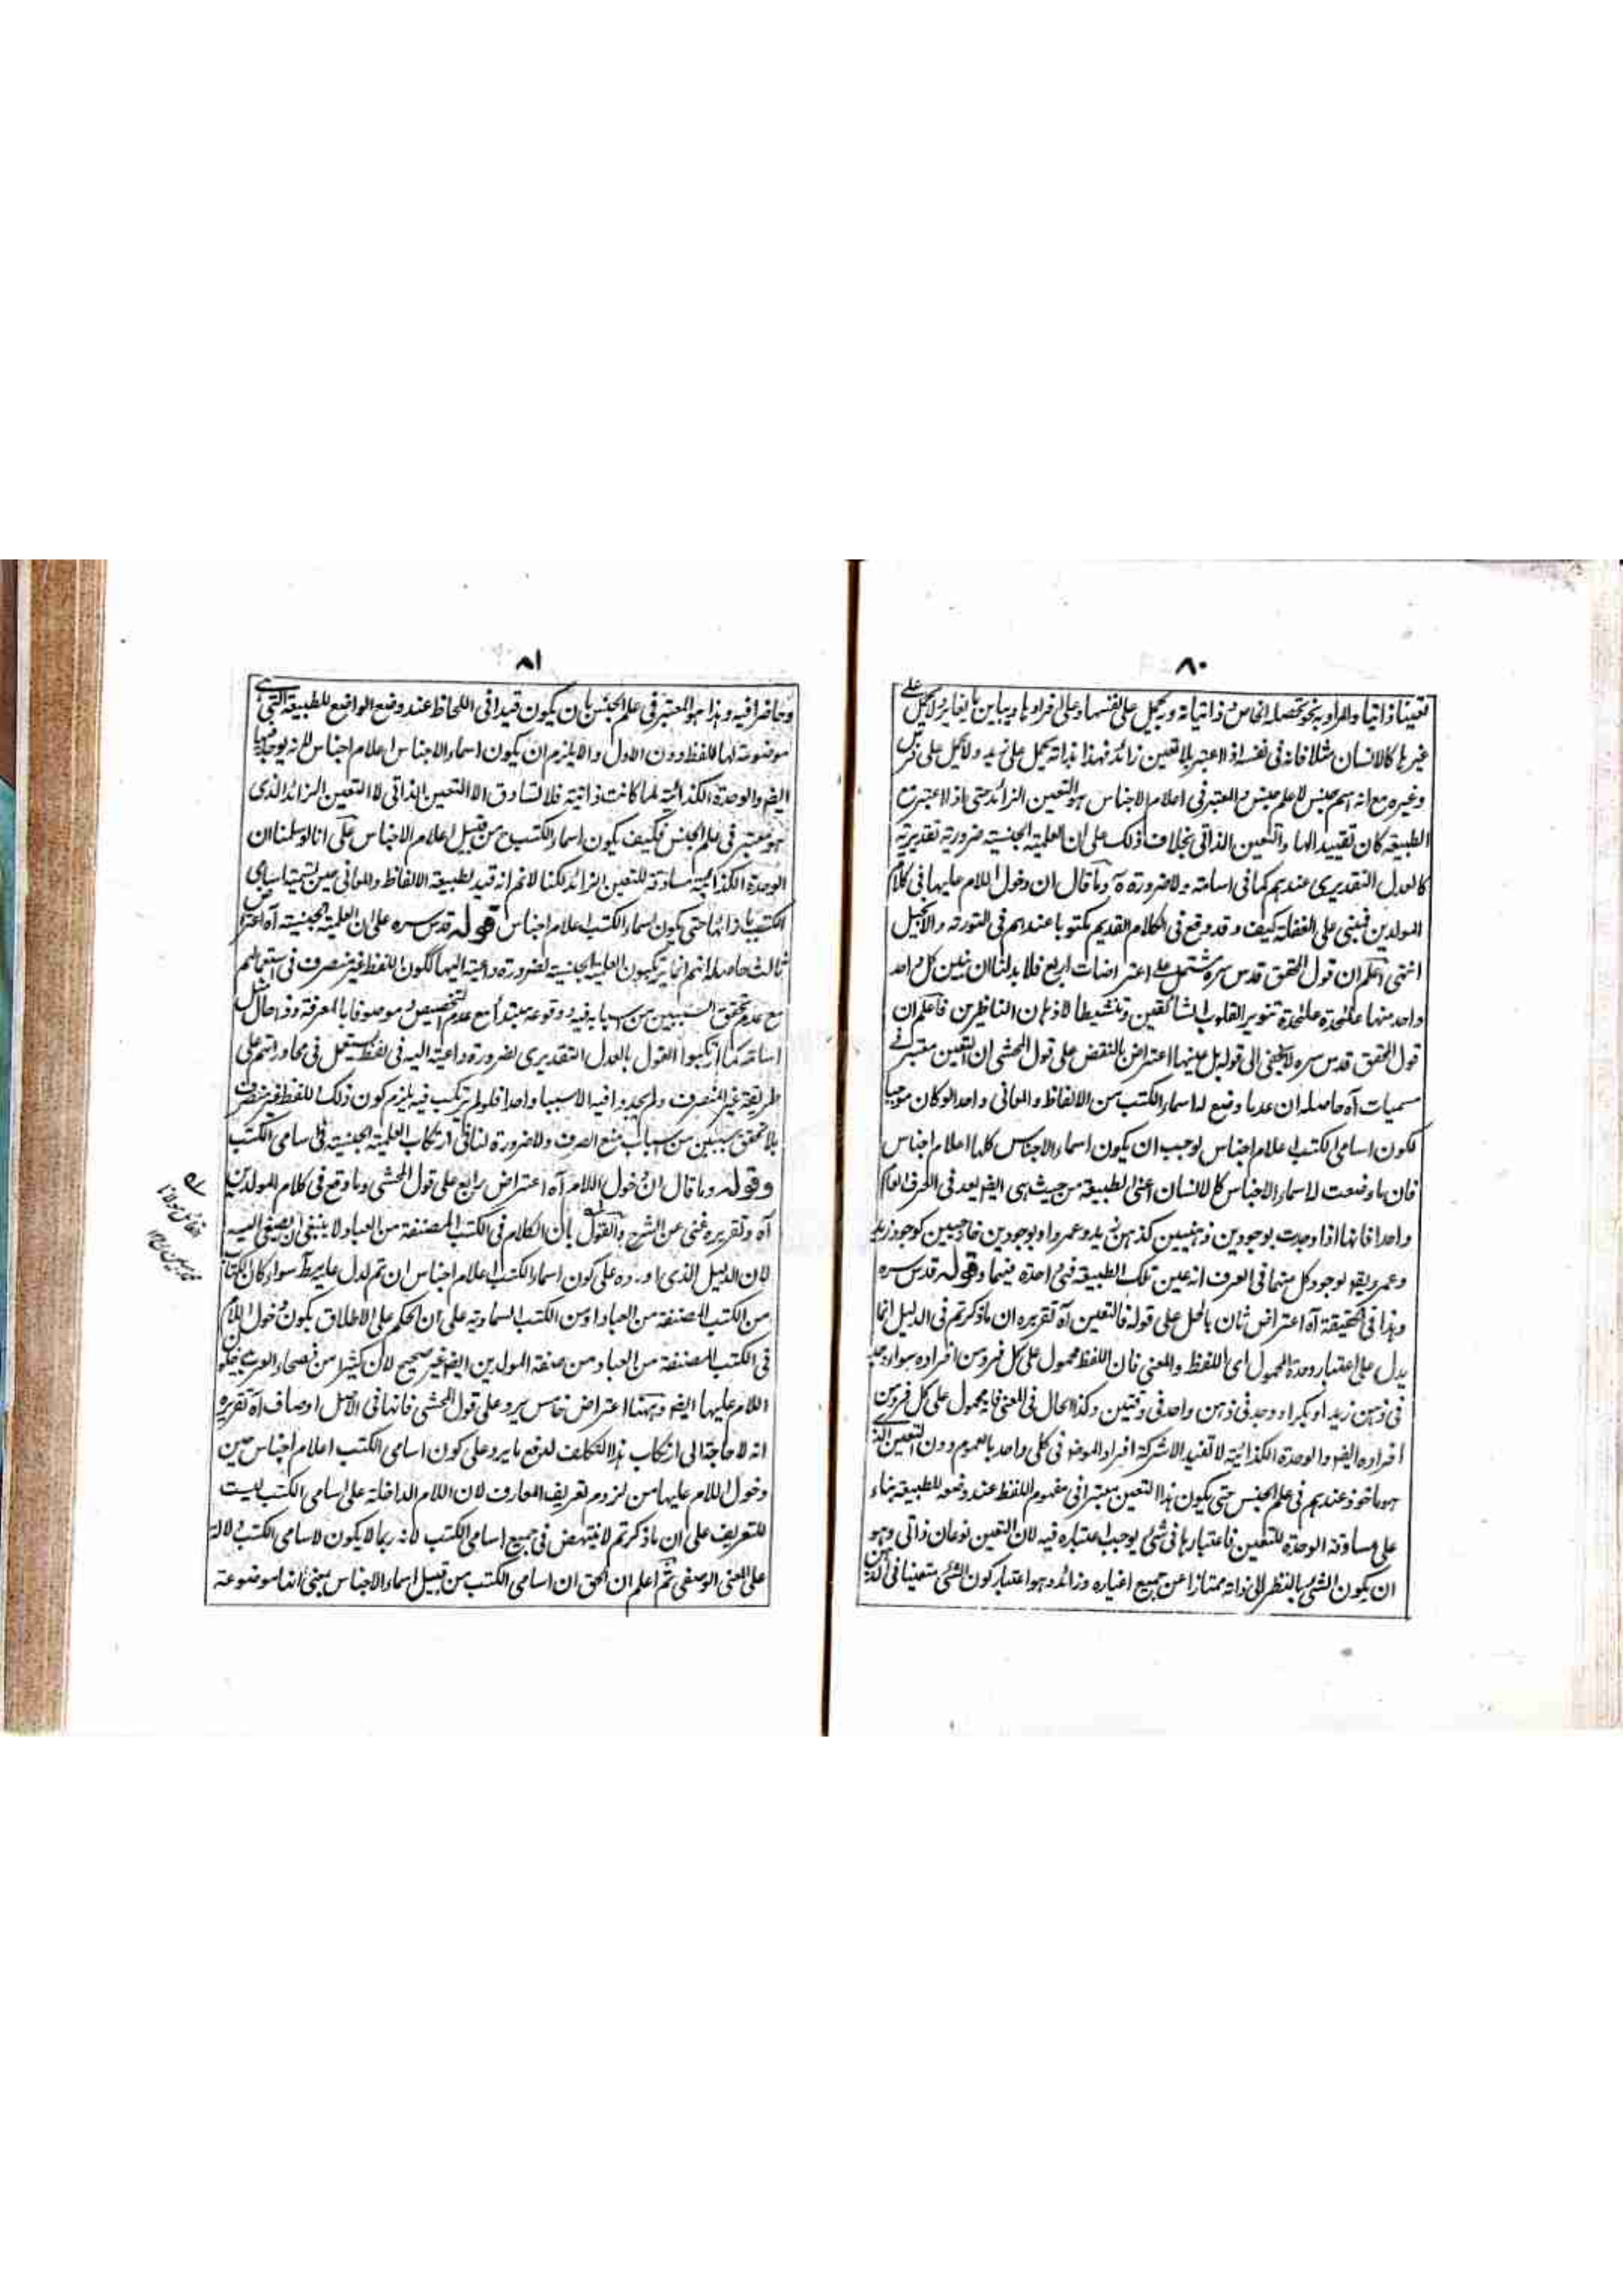 ٨٠
تعينا ذاتيا والمراد به نحو تحصله الخاص وذاتياته وبه يحمل على نفسها وعلى افرادها ويباين ما يغايرها لا يحمل على
غيرها كالانسان مثلا فانه فى نفسه اذا اعتبر بلا تعين زائد فهذا بذاته يحمل على زيد ولا يحمل على فرس
وغيره مع انه اسم جنس لا علم جنس والمعتبر فى اعلام الاجناس هو التعين الزائد حتى اذا اعتبر مع
الطبيعة كان تقييدا لها والتعين الذاتى بخلاف ذلك على ان العلمية الجنسية ضرورية تقديرية
كالعدل التقديرى عندهم كما فى اسامة ولا ضرورة ه وما قال ان دخول اللام عليها فى كلام
المولدين فمبنى على الغفلة كيف وقد وقع فى الكلام القديم مكتوبا عندهم فى التورىة والانجيل
انتهى اعلم ان قول المحقق قدس سره مشتمل على اعتراضات اربع فلا بد لنا ان نبين كل واحد
واحد منها علحدة علحدة تنوير القلوب الشائقين وتنشيطا لاذهان الناظرين فاعلم ان
قول المحقق قدس سره لا يخفى الى قوله بل عينها اعتراض بالنقض على قول المحشى ان التعين معتبر فى
مسميات آه حاصله ان عد ما وضع له اسماء الكتب من الالفاظ والمعانى واحدا لو كان موجبا
لكون اسامى الكتب اعلام اجناس لوجب ان يكون اسماء الاجناس كلها اعلام اجناس
فان ما وضعت له اسماء الاجناس كالانسان اعنى الطبيعة من حيث هى ايضا يعد فى العرف العام
واحدا فانها اذا وجدت بوجودين ذهنيين كذهن زيد وعمرو او بوجودين خارجيين كوجود زيد
وعمرو يقال لوجود كل منهما فى العرف انه عين تلك الطبيعة فهى واحدة فيهما وقوله قدس سره
وهذا فى الحقيقة آه اعتراض ثان بالحل على قوله فالتعين آه تقريره ان ما ذكرتم فى الدليل انما
يدل على اعتبار وحدة المحمول اى اللفظ والمعنى فان اللفظ محمول على كل فرد من افراده سواء وجد
فى ذهن زيد او بكر او وجد فى ذهن واحد فى وقتين وكذا الحال فى المعنى فانه محمول على كل فرد من
افراده ايضا والوحدة الكذائية لا تفيد الا شركة افراد الموضوع فى كلى واحد بالعموم دون التعين الذى
هو ماخوذ عندهم فى علم الجنس حتى يكون هذا التعين معتبرا فى مفهوم اللفظ عند وضعه للطبيعة بناء
على مساوقة الوحدة للتعين فاعتبارها فى شئ يوجب اعتباره فيه لان التعين نوعان ذاتى وهو
ان يكون الشئ بالنظر الى ذاته ممتازا عن جميع اغياره وزائد وهو اعتبار كون الشئ متعينا فى الذهن
٨١
وحاضرا فيه وهذا هو المعتبر فى علم الجنس بان يكون قيدا فى اللحاظ عند وضع الواضع للطبيعة التى هى
موضوعة لها للفظ دون الاول والا يلزم ان يكون اسماء الاجناس اعلام اجناس لانه يوجد فيها
ايضا والوحدة الكذائية لما كانت ذاتية فلا تساوق الا التعين الذاتى لا التعين الزائد الذى
هو معتبر فى علم الجنس فكيف يكون اسماء الكتب ح من قبيل اعلام الاجناس على انا لو سلمنا ان
الوحدة الكذائية مساوقة للتعين الزائد لكنا لا نم انه قيد لطبيعة الالفاظ والمعانى حين تسمية اسامى
الكتب بازائها حتى يكون اسماء الكتب اعلام اجناس قوله قدس سره على ان العلمية الجنسية آه اعتراض
ثالث حاصله انهم انما يرتكبون العلمية الجنسية لضرورة داعية اليها لكون اللفظ غير منصرف فى استعمالهم
مع عدم تحقق السببين من اسبابه فيه ووقوعه مبتدأ مع عدم التخصيص وموصوفا بالمعرفة وذا حال مثل
اسامة كما ارتكبوا القول بالعدل التقديرى لضرورة داعية اليه فى لفظ يستعمل فى محاوراتهم على
طريقة غير المنصرف ولم يجدوا فيه الا سببا واحدا فلو لم يرتكب فيه يلزم كون ذلك اللفظ غير منصرف
بلا تحقق سببين من اسباب منع الصرف ولا ضرورة لنا فى ارتكاب العلمية الجنسية فى اسامى الكتب
وقوله وما قال ان دخول اللام آه اعتراض رابع على قول المحشى وما وقع فى كلام المولدين
آه وتقريره غنى عن الشرح والقول بان الكلام فى الكتب المصنفة من العباد لا ينبغى ان يصغى اليه
لان الدليل الذى اورده على كون اسماء الكتب اعلام اجناس ان تم لدل عليه مط سواء كان الكتاب
من الكتب المصنفة من العباد او من الكتب السماوية على ان الحكم على الاطلاق بكون دخول اللام
فى الكتب المصنفة من العباد من صنعة المولدين ايضا غير صحيح لان كثيرا من فصحاء العرب يدخلون
اللام عليها ايضا وههنا اعتراض خامس يرد على قول المحشى فانها فى الاصل اوصاف آه تقريره
انه لا حاجة الى ارتكاب هذا التكلف لدفع ما يرد على كون اسامى الكتب اعلام اجناس حين
دخول اللام عليها من لزوم تعريف المعارف لان اللام الداخلة على اسامى الكتب ليست
للتعريف على ان ما ذكرتم لا ينتهض فى جميع اسامى الكتب لانه ربما لا يكون لاسامى الكتب دلالة
على المعنى الوصفى ثم اعلم ان الحق ان اسامى الكتب من قبيل اسماء الاجناس بمعنى انها موضوعة
القائل مولانا